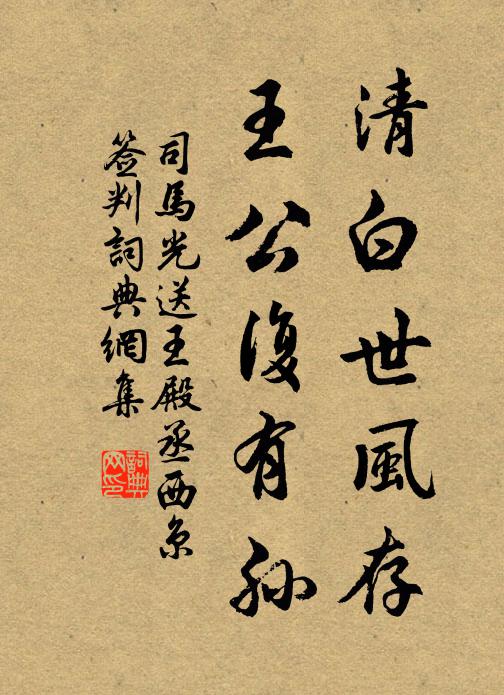 清白世風存
王公復有孫
司馬光送王殿丞西京
簽判詞典網集
詞典
网印